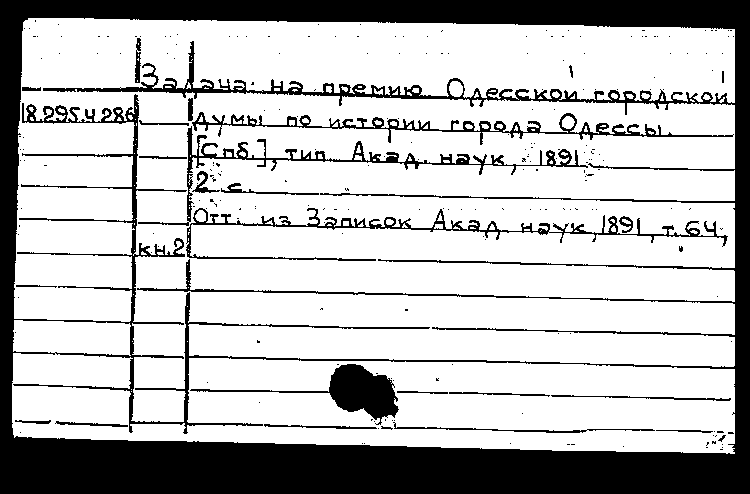 Задача на премию Одесской городской
18.295.4.286 думы по истории города Одессы.
[Спб.], тип. Акад. наук, 1891.
2 с.
Отт. из Записок Акад. наук, 1891, т. 64,
кн. 2.